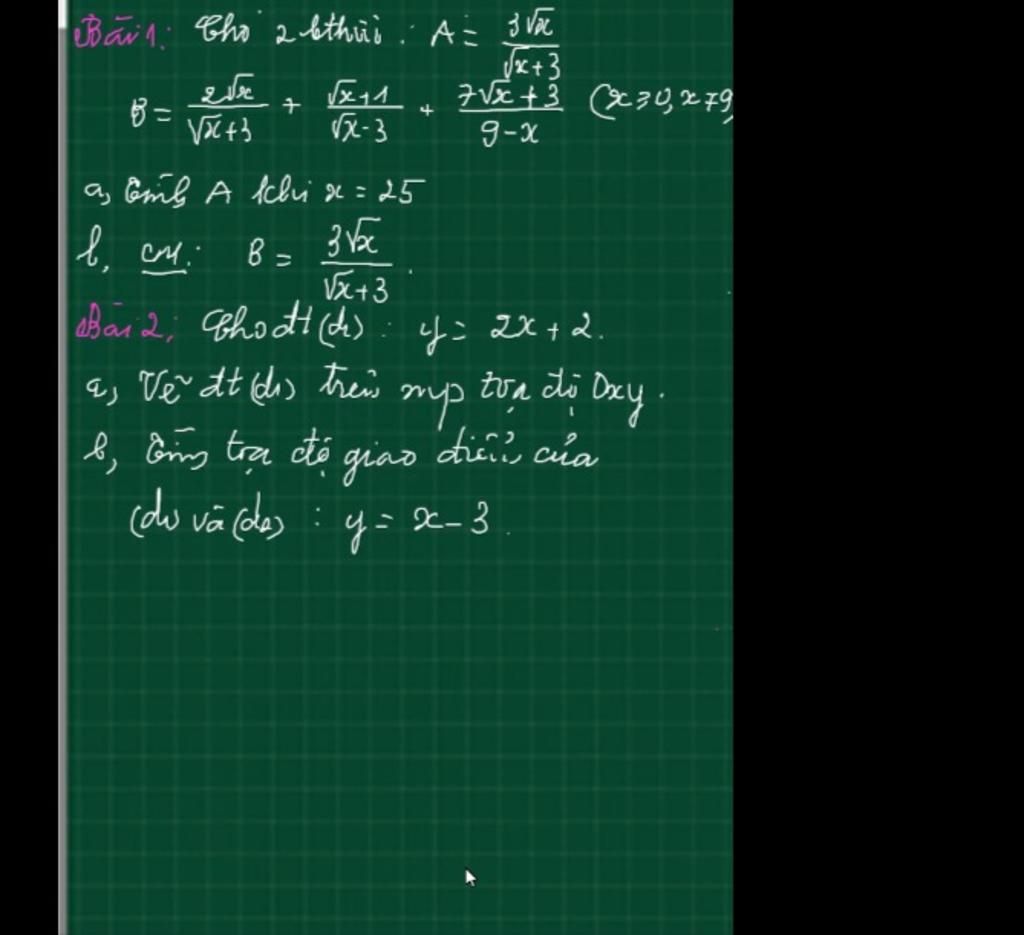 Bài 1: Cho 2 bthức: A = \frac{3\sqrt{x}}{\sqrt{x+3}}
B = \frac{2\sqrt{x}}{\sqrt{x}+3} + \frac{\sqrt{x}+1}{\sqrt{x}-3} + \frac{7\sqrt{x}+3}{9-x} (x ≥ 0, x ≠ 9)
a, Tính A khi x = 25
b, CM: B = \frac{3\sqrt{x}}{\sqrt{x}+3}.
Bài 2: Cho đt (d1): y = 2x + 2.
a, Vẽ đt (d1) trên mp tọa độ Oxy.
b, Tìm tọa độ giao điểm của
(d1) và (d2): y = x - 3.